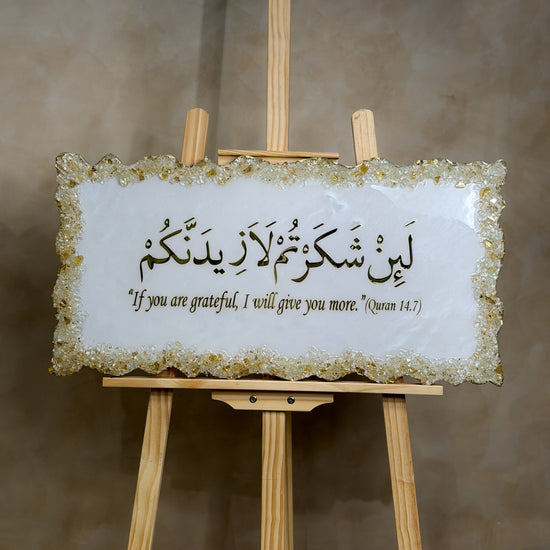 لَئِنْ شَكَرْتُمْ لَاَزِيدَنَّكُمْ
“If you are grateful, I will give you more.” (Quran 14.7)